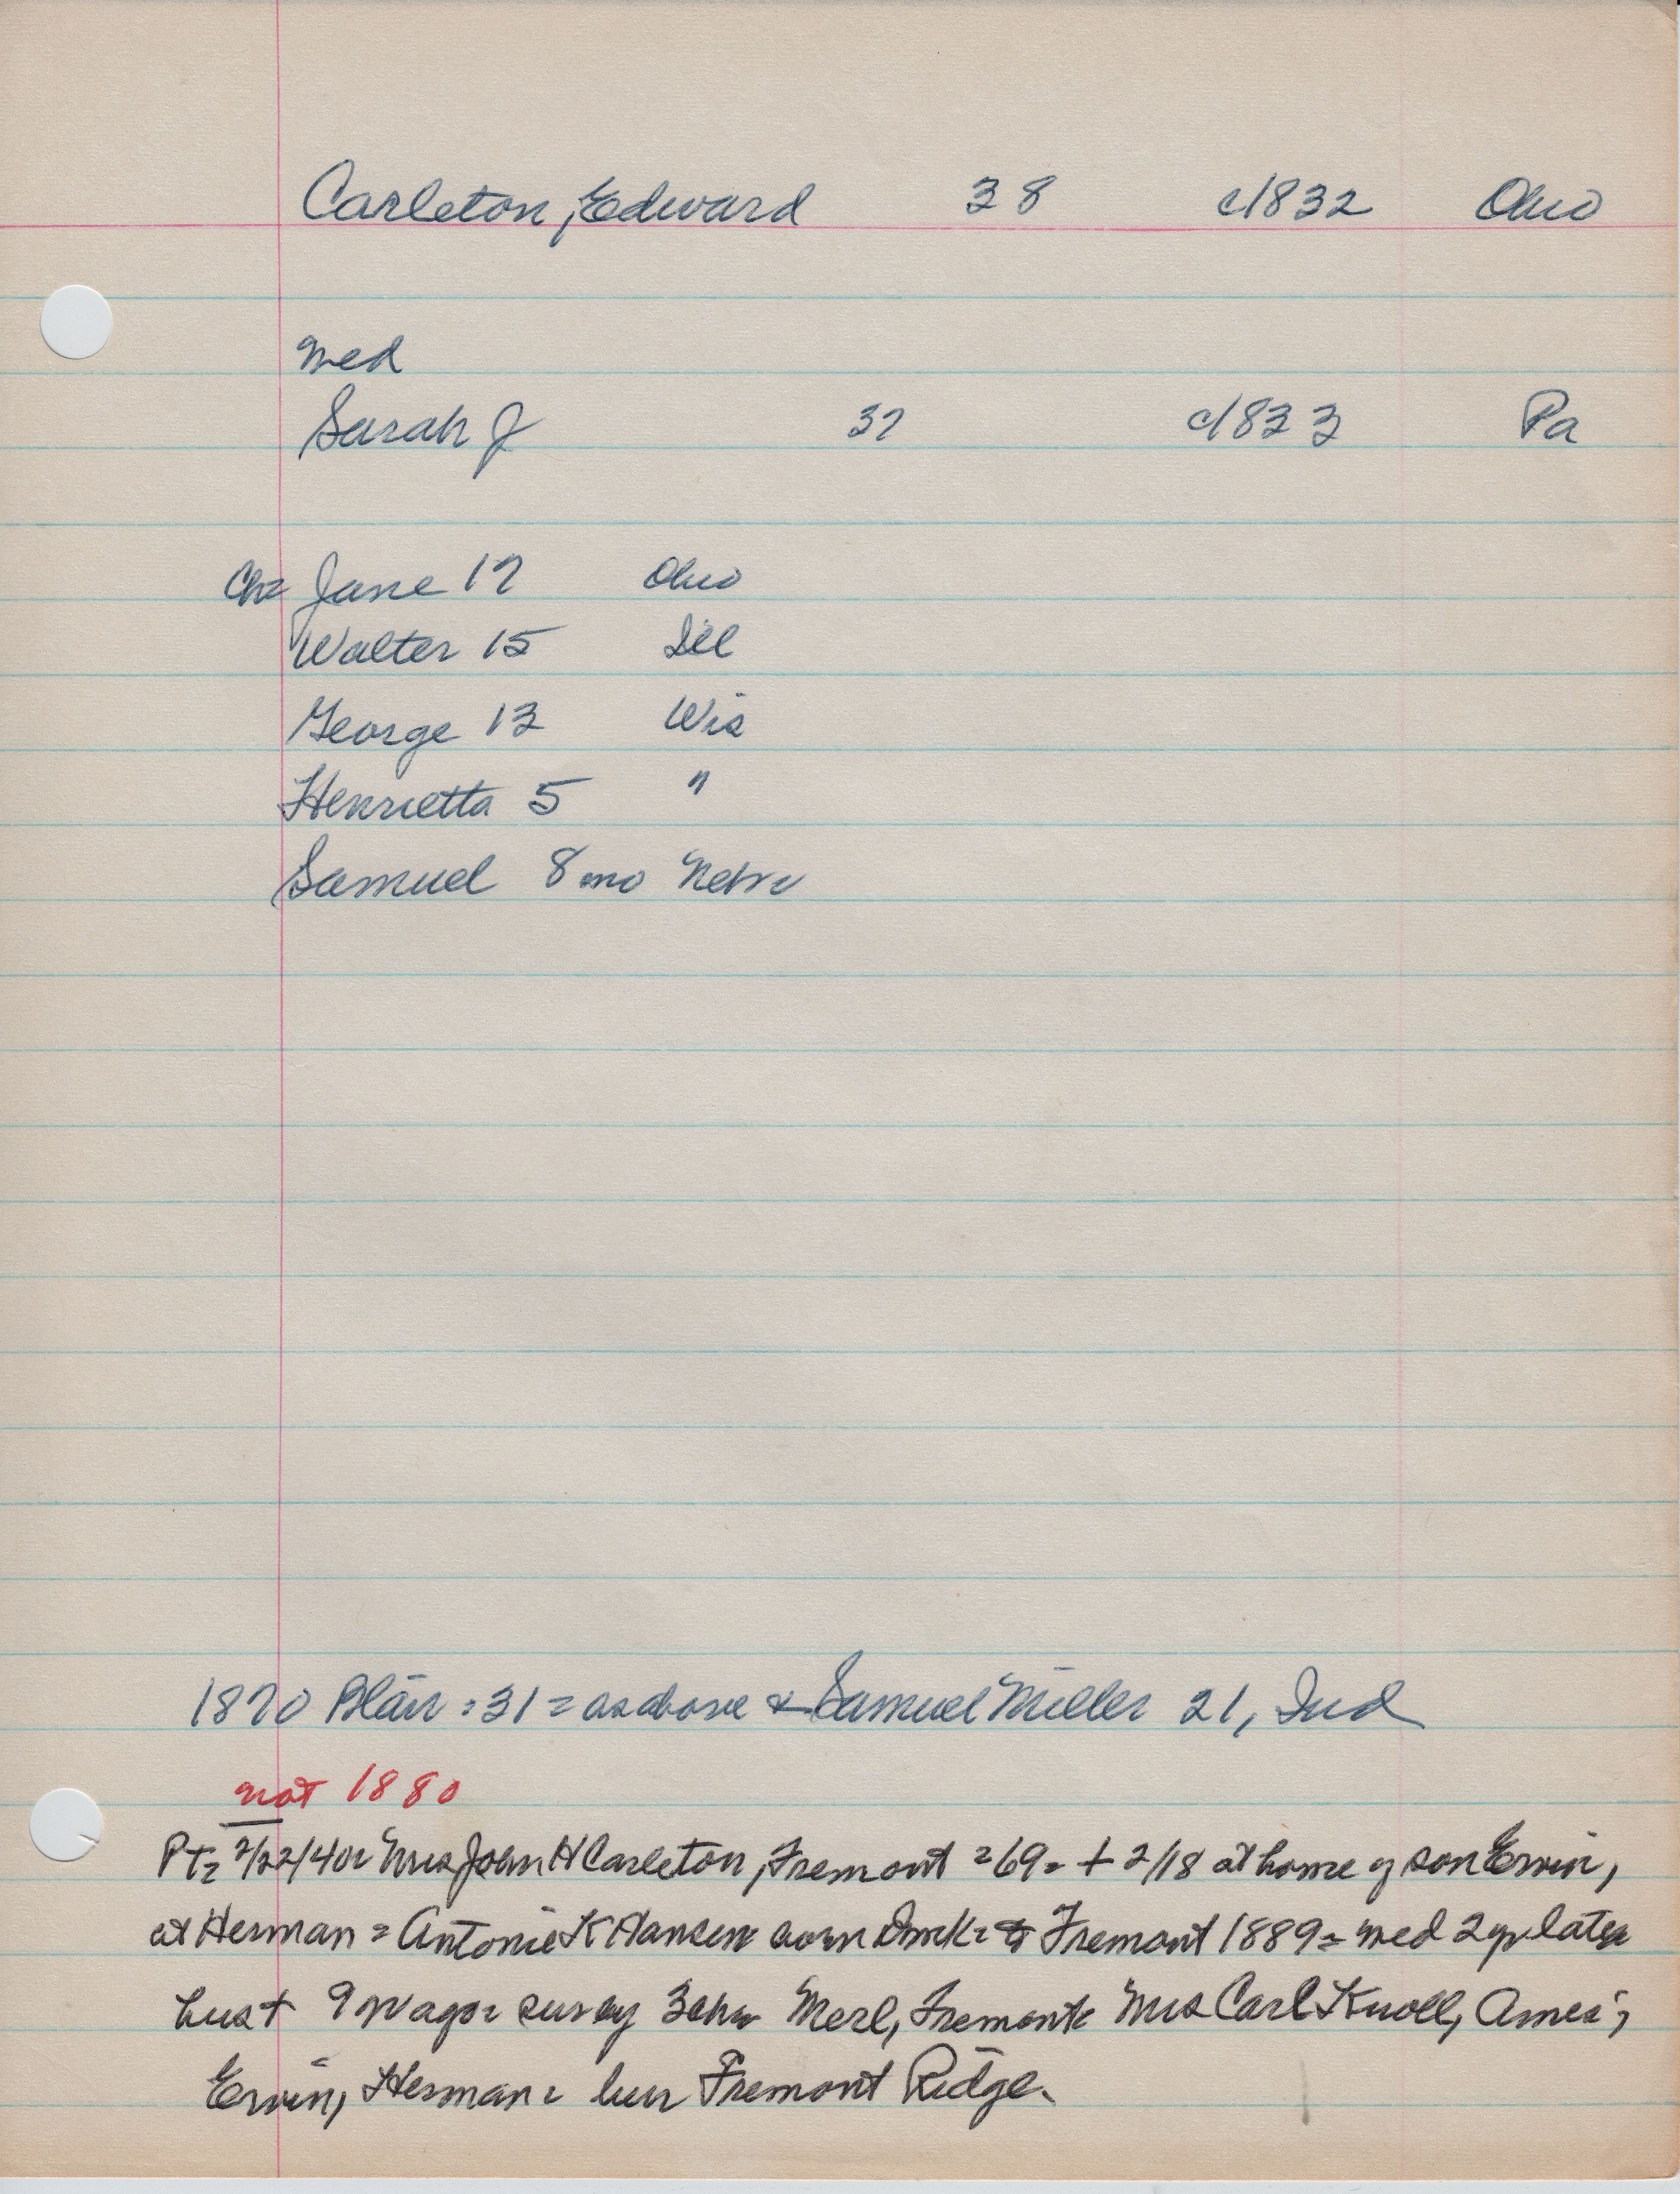 Carleton, Edward 38 c1832 Ohio
med
Sarah J 37 c1833 Pa
Ch= Jane 17 Ohio
Walter 15 Ill
George 13 Wis
Henrietta 5 "
Samuel 8 mo Nebr
1870 Blair = 31 = as above & Samuel Miller 21, Ind
not 1880
Pt= 2/22/40 = Mrs John H Carleton, Fremont = 69 = + 2/18 at home of son Ervin,
at Herman = Antonie K Hansen born Dmk = to Fremont 1889 = med 2 yr later
hus + 9 yr ago = sur by 3 ch = Merl, Fremont = Mrs Carl Knoll, Ames;
Ervin, Herman = bur Fremont Ridge.